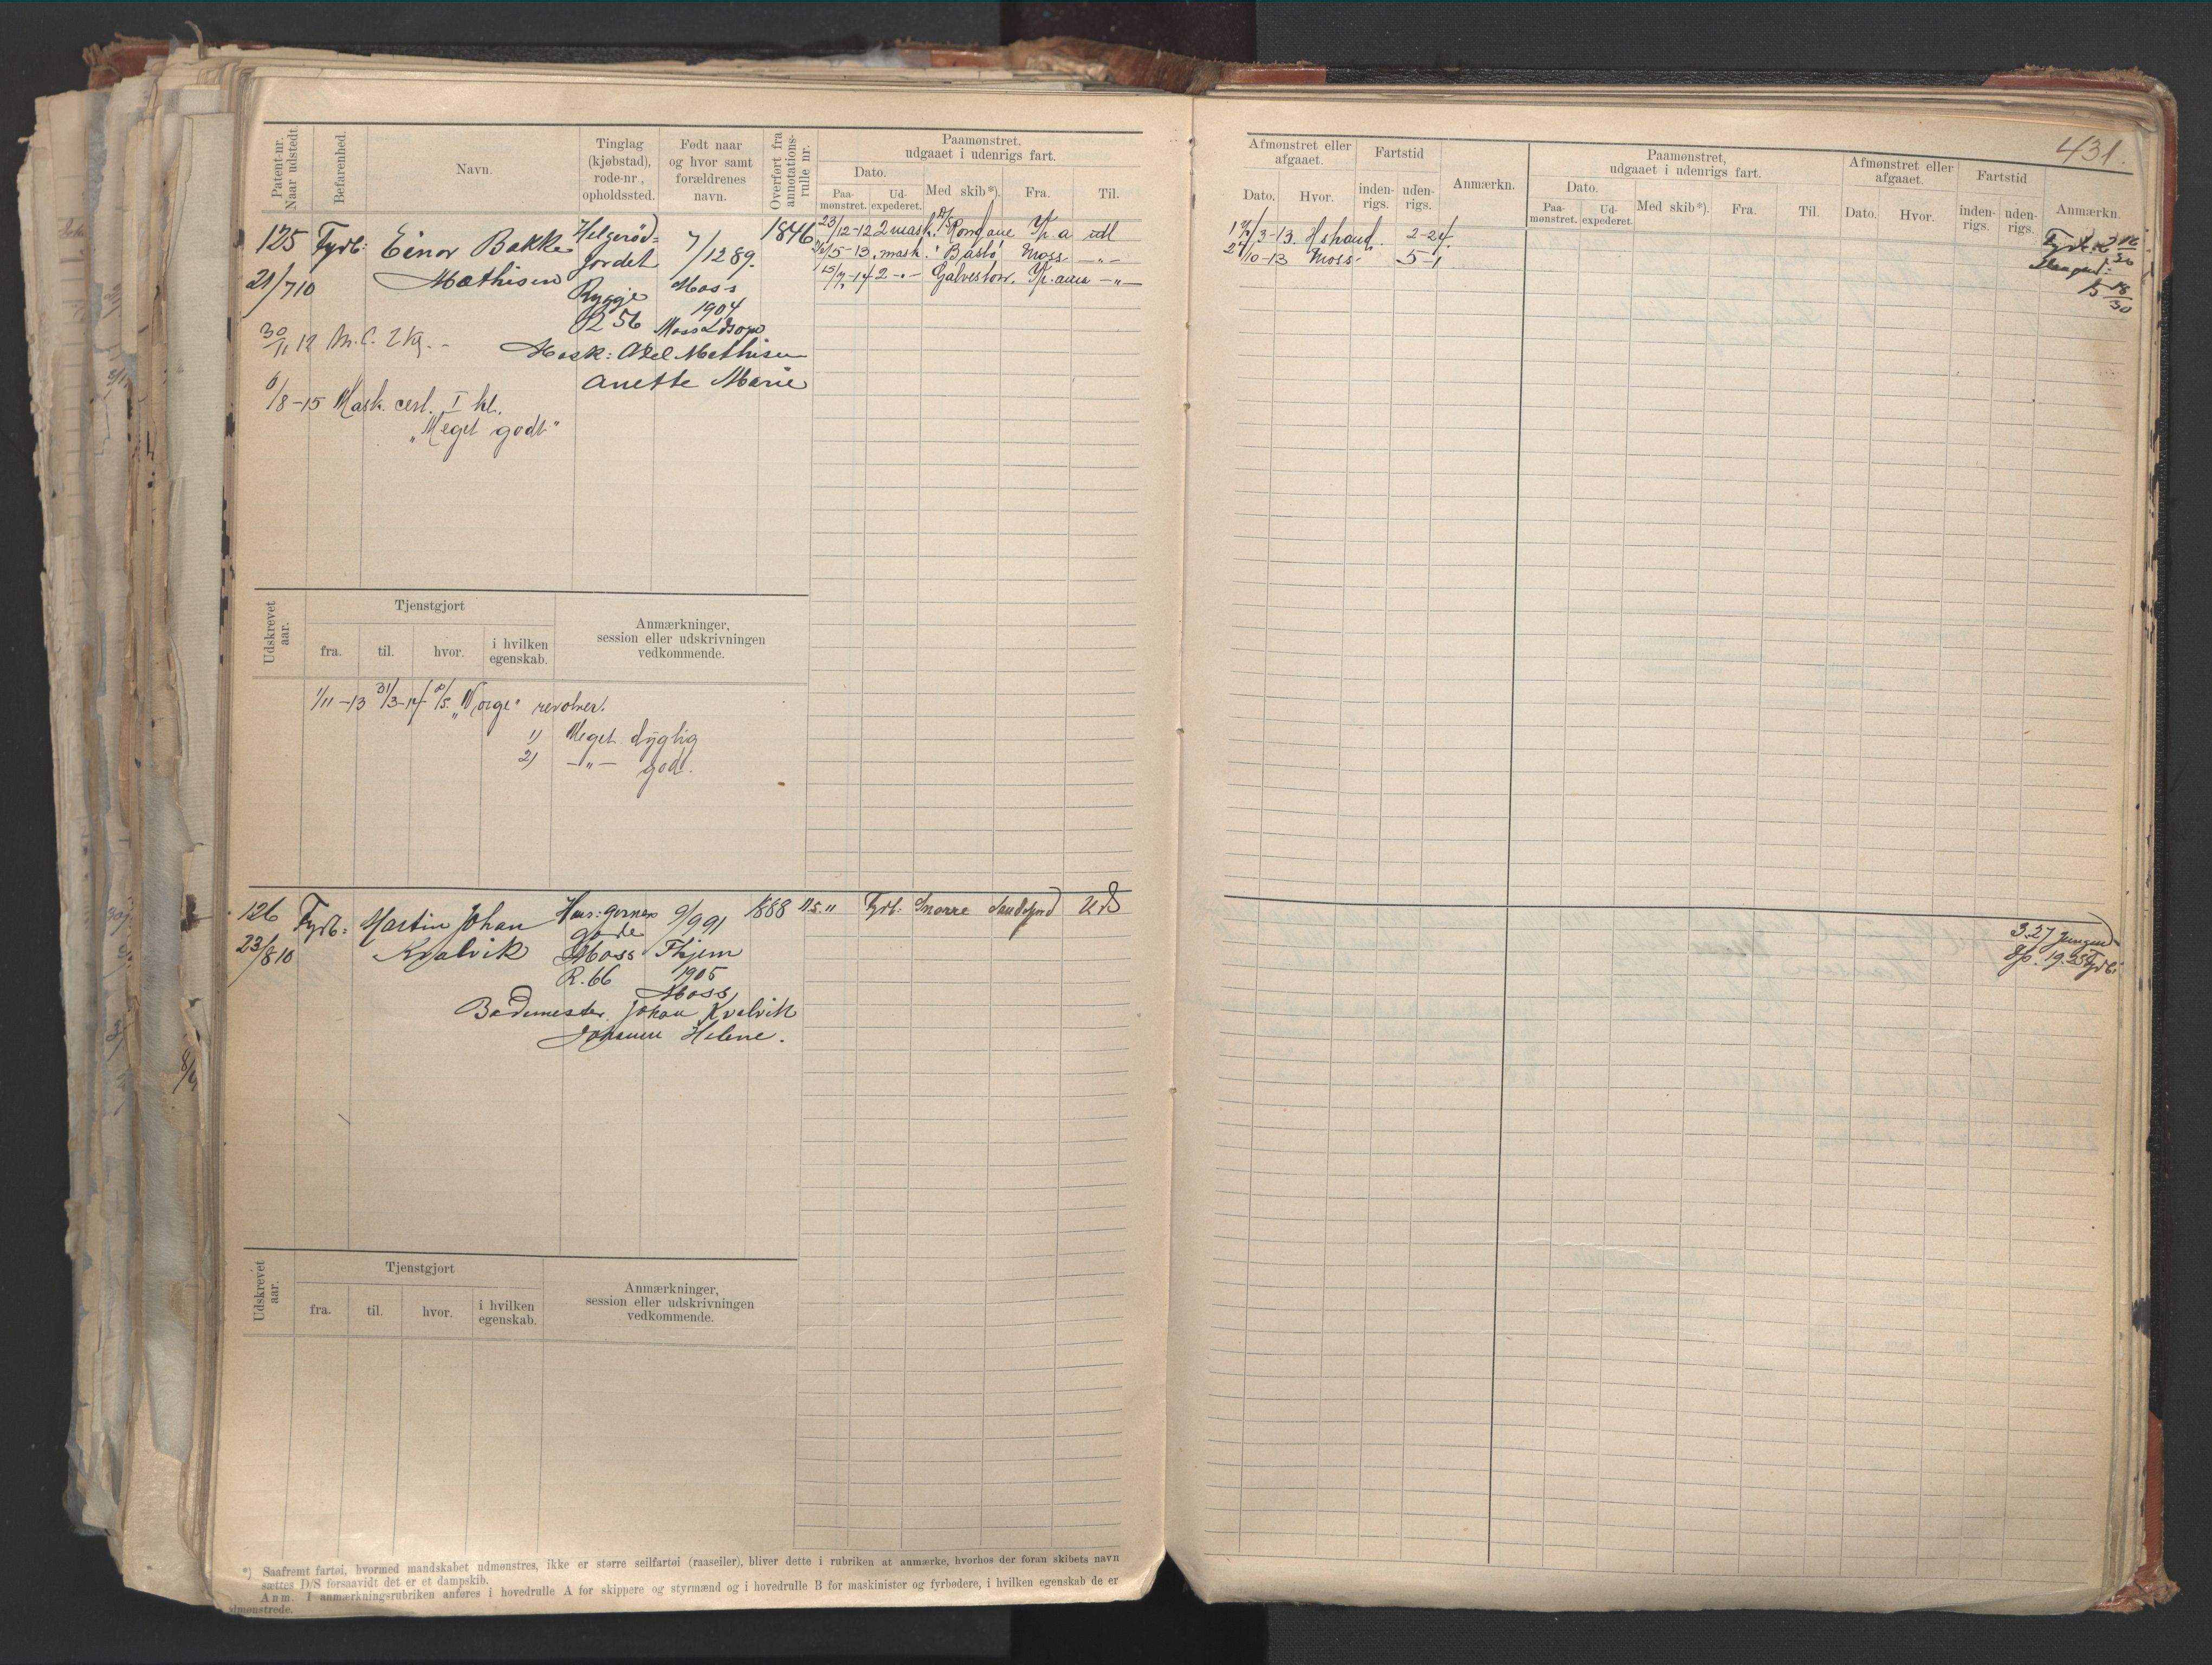 431.
Patent-nr. Naar udstedt.
Befarenhed.
Navn.
Tinglag (kjøbstad), rode-nr., opholdssted.
Født naar og hvor samt forældrenes navn.
Overført fra annotations-rulle nr.
Paamønstret, udgaaet i udenrigs fart.
Dato.
Paa-mønstret.
Ud-expederet.
Med skib*).
Fra.
Til.
Afmønstret eller afgaaet.
Dato.
Hvor.
Fartstid
inden-rigs.
uden-rigs.
Anmærkn.
Paamønstret, udgaaet i udenrigs fart.
Dato.
Paa-mønstret.
Ud-expederet.
Med skib*).
Fra.
Til.
Afmønstret eller afgaaet.
Dato.
Hvor.
Fartstid
inden-rigs.
uden-rigs.
Anmærkn.
125 Fyrb: Einar Bakke Helgerød= 7/12 89. 1846 23/12-12 2 mask. Rondane Kr.a udl
Mathisen jordet Moss
21/7 10 Rygge 1904
R 56 Moss
/5-13 mask. Bastø Moss -"-
15/7-14 2 -"- Galveston. Kr.ania -"-
/3-13. Hshand. 2-24.
/10-13 Moss 5-1
30/11 12 M.C. 2 Kl. -
Mask: Axel Mathisen
Anette Marie
6/8-15 Mask. cert. I kl.
"Meget godt"
Udskrevet aar.
Tjenstgjort
fra.
til.
hvor.
i hvilken egenskab.
Anmærkninger, session eller udskrivningen vedkommende.
1/11-13 31/3-14 P/S. "Norge" revolver.
1) Meget dygtig
2) -"- god.
126 Fyrb: Martin Johan 9/9 91 1888 11.5.11 Fyrb: Snorre Sandefjord Uds
23/8 10 Kvalvik gade Moss
R. 66 1905
Moss
Bademester Johan Kvalvik
Helene.
3.27 Jungmd
19.25 Fyrb:
Udskrevet aar.
Tjenstgjort
fra.
til.
hvor.
i hvilken egenskab.
Anmærkninger, session eller udskrivningen vedkommende.
*) Saafremt fartøi, hvormed mandskabet udmønstres, ikke er større seilfartøi (raaseiler), bliver dette i rubriken at anmærke, hvorhos der foran skibets navn
sættes D/S forsaavidt det er et dampskib.
Anm. I anmærkningsrubriken anføres i hovedrulle A for skippere og styrmænd og i hovedrulle B for maskinister og fyrbødere, i hvilken egenskab de er
dmønstrede.